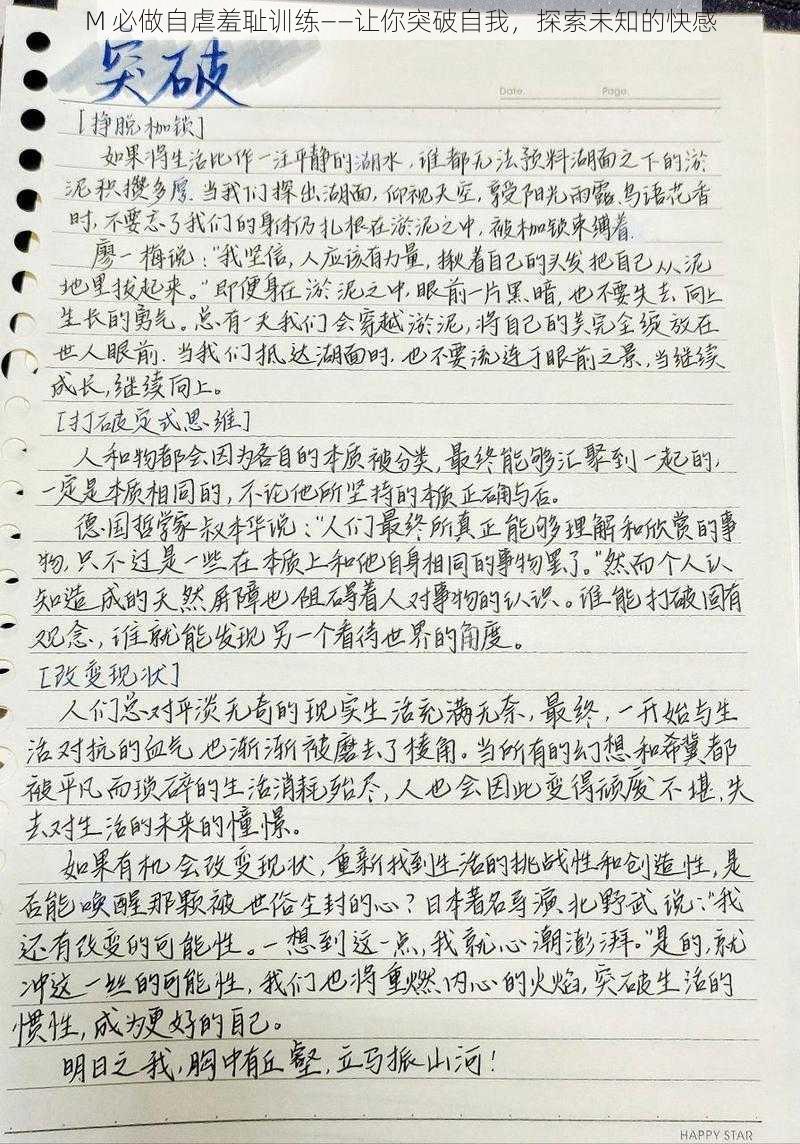 M 必做自虐羞耻训练——让你突破自我，探索未知的快感
突破
Date.
Page.
[挣脱枷锁]
如果将生活比作一汪平静的湖水，谁都无法预料湖面之下的淤
泥积攒多厚. 当我们探出湖面，仰视天空，享受阳光雨露.鸟语花香
时，不要忘了我们的身体仍扎根在淤泥之中，被枷锁束缚着.
廖一梅说：“我坚信，人应该有力量，揪着自己的头发把自己从泥
地里拔起来。”即便身在淤泥之中，眼前一片黑暗，也不要失去向上
生长的勇气。总有一天我们会穿越淤泥，将自己的美完全绽放在
世人眼前. 当我们抵达湖面时，也不要流连于眼前之景，当继续
成长，继续向上。
[打破定式思维]
人和物都会因为各自的本质被分类，最终能够汇聚到一起的，
一定是本质相同的，不论他所坚持的本质正确与否。
德国哲学家叔本华说：“人们最终所真正能够理解和欣赏的事
物，只不过是一些在本质上和他自身相同的事物罢了。”然而个人认
知造成的天然屏障也阻碍着人对事物的认识。谁能打破固有
观念，谁就能发现另一个看待世界的角度。
[改变现状]
人们总对平淡无奇的现实生活充满无奈，最终，一开始与生
活对抗的血气也渐渐被磨去了棱角。当所有的幻想和希冀都
被平凡而琐碎的生活消耗殆尽，人也会因此变得颓废不堪，失
去对生活的未来的憧憬。
如果有机会改变现状，重新找到生活的挑战性和创造性，是
否能唤醒那颗被世俗尘封的心？日本著名导演北野武说：“我
还有改变的可能性。一想到这一点，我就心潮澎湃。”是的，就
冲这一丝的可能性，我们也将重燃内心的火焰，突破生活的
惯性，成为更好的自己。
明日之我，胸中有丘壑，立马振山河！
HAPPY STAR